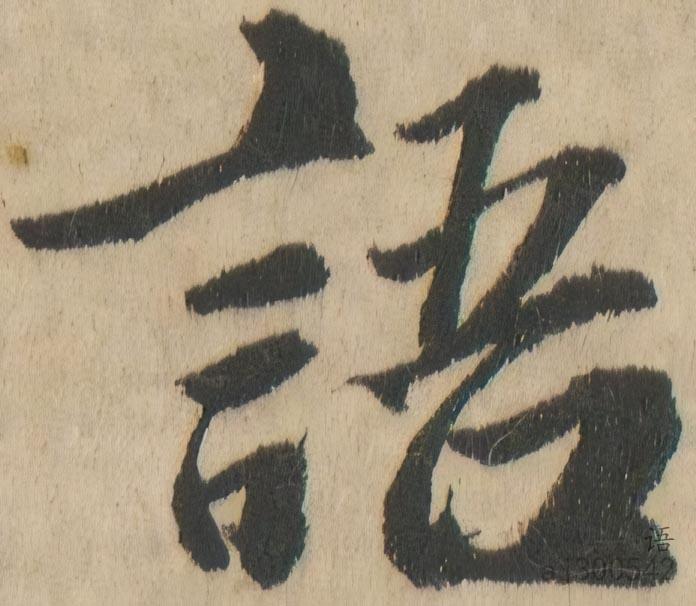 語
语
a1300542